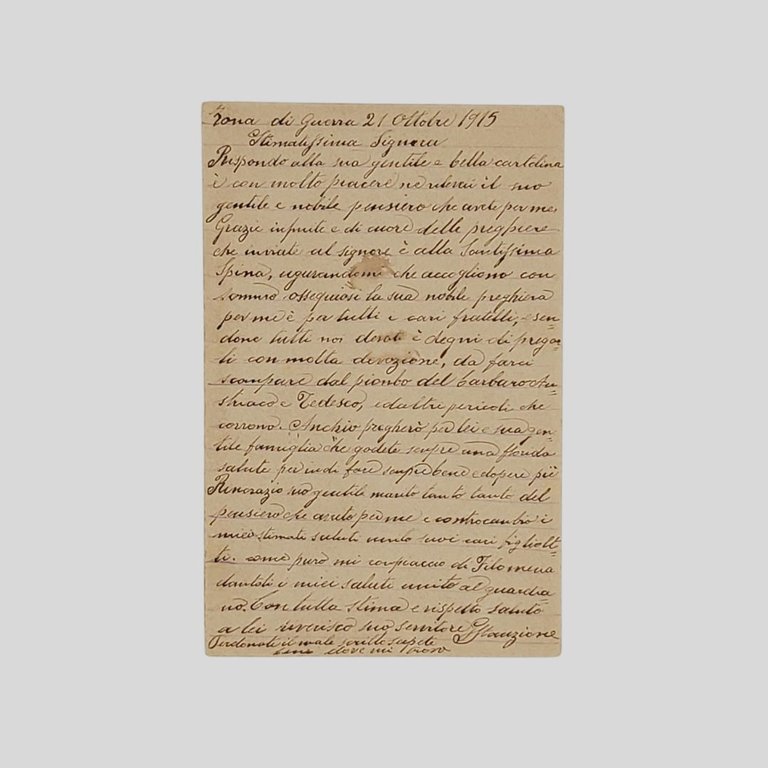 Zona di Guerra 21 Ottobre 1915
Stimatissima Signora
Rispondo alla sua gentile e bella cartolina
è con molto piacere ne rilevai il suo
gentile e nobile pensiero che avete per me,
Grazie infinite e di cuore delle preghiere
che inviate al signore è alla Santissima
Spina, ugurandomi che accogliono con
ossequiosi la sua nobile preghiera
per me è per tutti i cari fratelli, essen-
done tutti noi devoti è degni di prega-
ti con molta devozione, da farci
scampare dal piombo del barbaro Au-
striaco e Tedesco, e daltri pericoli che
corrono. Anchio pregherò per lei e sua gen-
tile famiglia che godete sempre una florida
salute per indi fare sempre bene e dopere più
Rincrazio suo gentile marito tanto tanto del
pensiero che avuto per me e controcambio i
miei stimati saluti unito suoi cari figliolet-
ti. come puro mi compiaccio di Filomena
dantoli i miei saluti unito al guardia
no. Con tutta stima e rispetto saluto
a lei riverisco suo servitore
Perdonati il male scritto sapete
bene dove mi trovo